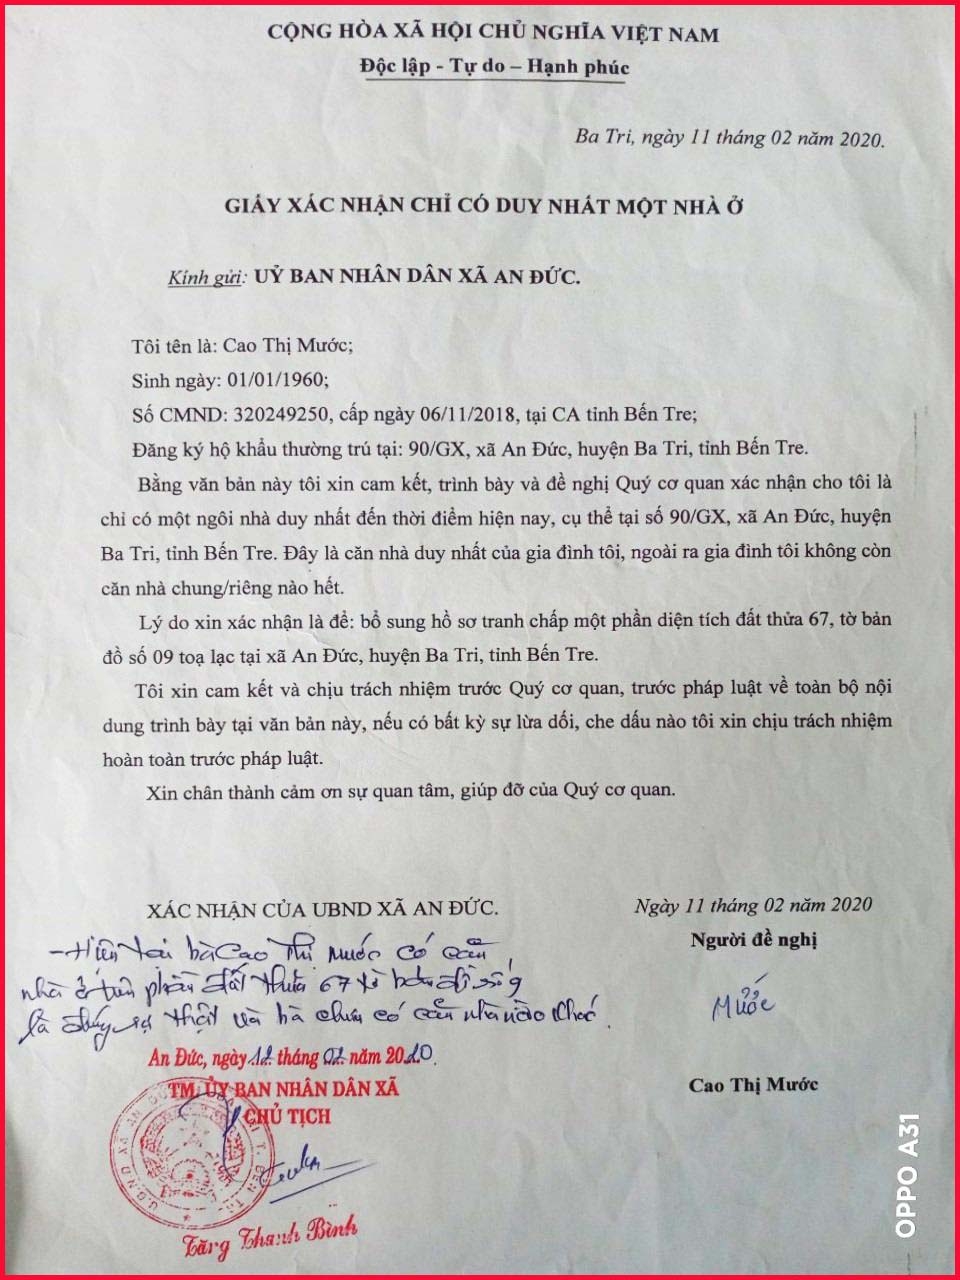 CỘNG HÒA XÃ HỘI CHỦ NGHĨA VIỆT NAM
Độc lập - Tự do – Hạnh phúc
Ba Tri, ngày 11 tháng 02 năm 2020.
GIẤY XÁC NHẬN CHỈ CÓ DUY NHẤT MỘT NHÀ Ở
Kính gửi: UỶ BAN NHÂN DÂN XÃ AN ĐỨC.
Tôi tên là: Cao Thị Mước;
Sinh ngày: 01/01/1960;
Số CMND: 320249250, cấp ngày 06/11/2018, tại CA tỉnh Bến Tre;
Đăng ký hộ khẩu thường trú tại: 90/GX, xã An Đức, huyện Ba Tri, tỉnh Bến Tre.
Bằng văn bản này tôi xin cam kết, trình bày và đề nghị Quý cơ quan xác nhận cho tôi là
chỉ có một ngôi nhà duy nhất đến thời điểm hiện nay, cụ thể tại số 90/GX, xã An Đức, huyện
Ba Tri, tỉnh Bến Tre. Đây là căn nhà duy nhất của gia đình tôi, ngoài ra gia đình tôi không còn
căn nhà chung/riêng nào hết.
Lý do xin xác nhận là để: bổ sung hồ sơ tranh chấp một phần diện tích đất thửa 67, tờ bản
đồ số 09 toạ lạc tại xã An Đức, huyện Ba Tri, tỉnh Bến Tre.
Tôi xin cam kết và chịu trách nhiệm trước Quý cơ quan, trước pháp luật về toàn bộ nội
dung trình bày tại văn bản này, nếu có bất kỳ sự lừa dối, che dấu nào tôi xin chịu trách nhiệm
hoàn toàn trước pháp luật.
Xin chân thành cảm ơn sự quan tâm, giúp đỡ của Quý cơ quan.
XÁC NHẬN CỦA UBND XÃ AN ĐỨC.
Ngày 11 tháng 02 năm 2020
Người đề nghị
- Hiện tại bà Cao Thị Mước có căn
nhà ở trên phần đất thửa 67 tờ bản đồ số 9
là đúng sự thật và bà chưa có căn nhà nào khác.
Mước
An Đức, ngày 12 tháng 02 năm 2020.
TM. ỦY BAN NHÂN DÂN XÃ
CHỦ TỊCH
Cao Thị Mước
Tăng Thanh Bình
OPPO A31